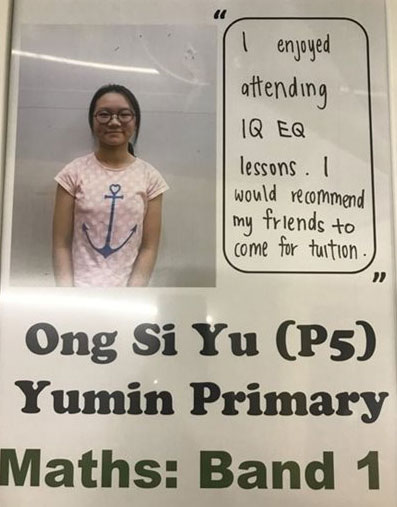 “
I enjoyed
attending
IQ EQ
lessons. I
would recommend
my friends to
come for tuition.
”
Ong Si Yu (P5)
Yumin Primary
Maths: Band 1